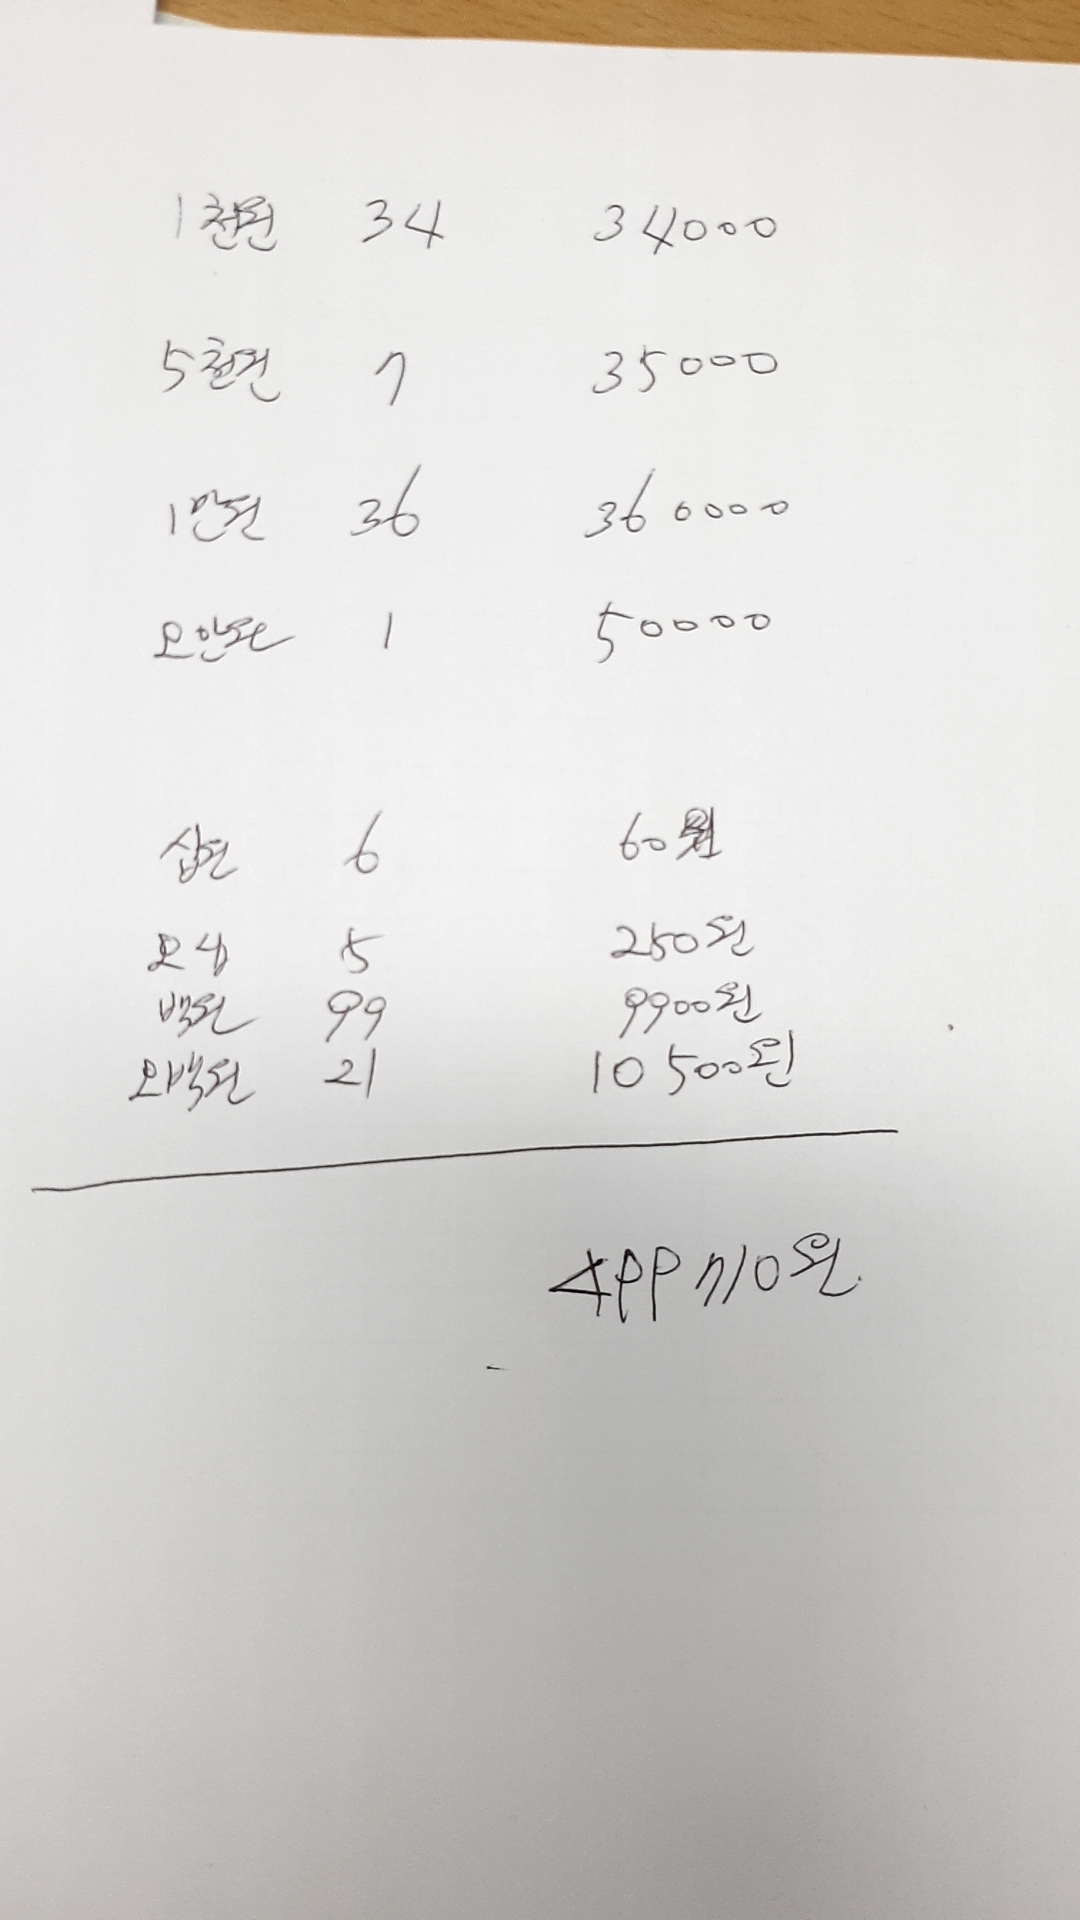 1천원 34 34000
5천원 7 35000
1만원 36 360000
오만원 1 50000
십원 6 60원
오십 5 250원
백원 99 9900원
오백원 21 10500원
499710원